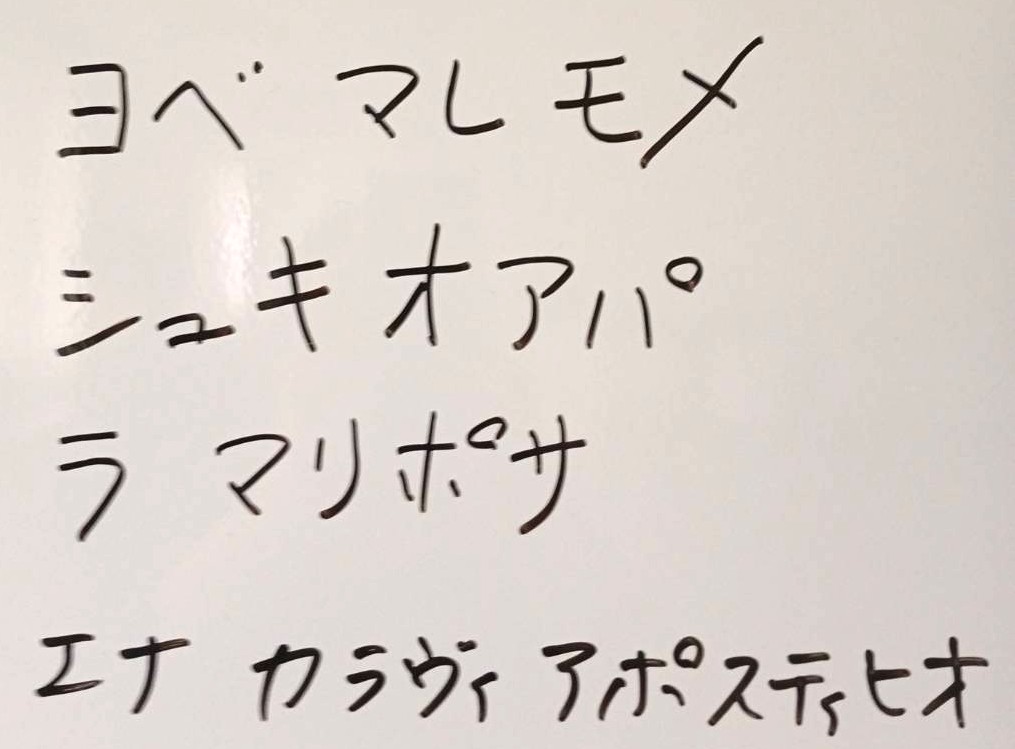 ヨベ マレ モメ
シュキオアパ
ラ マリポサ
エナ カラヴィ アポスティヒオ